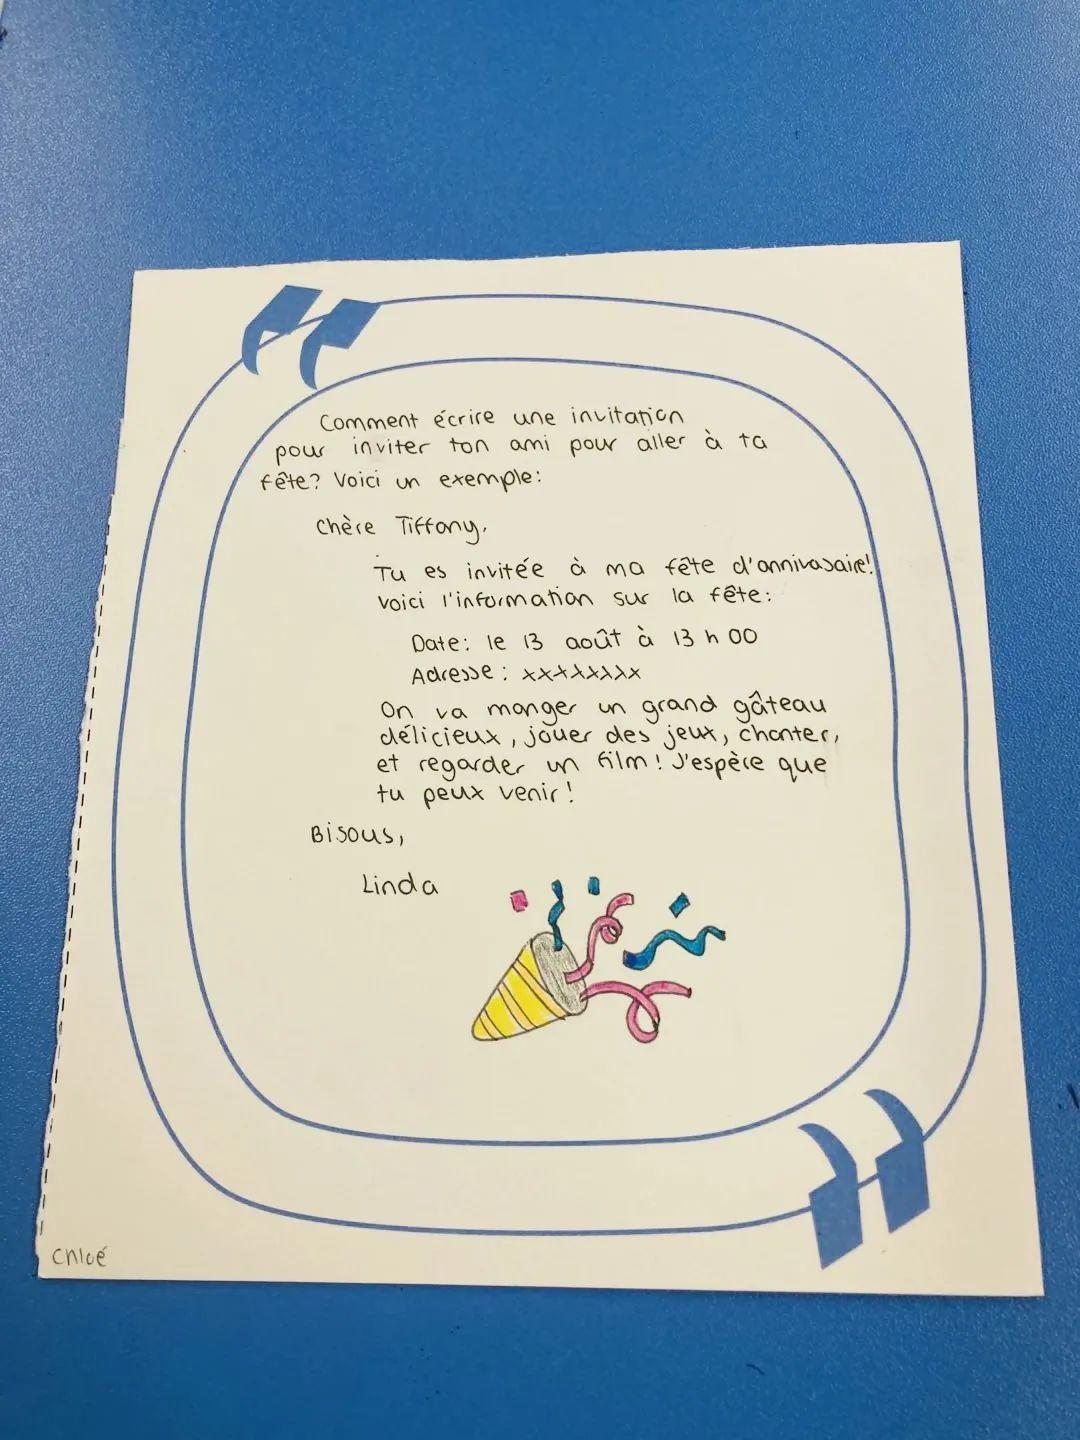 Comment écrire une invitation
pour inviter ton ami pour aller à ta
fête? Voici un exemple:
Chère Tiffany,
Tu es invitée à ma fête d'annivasaire!
Voici l'information sur la fête:
Date: le 13 août à 13 h 00
Adresse: xxxxxxxx
On va manger un grand gâteau
délicieux, jouer des jeux, chanter,
et regarder un film! J'espère que
tu peux venir!
Bisous,
Linda
Chloé